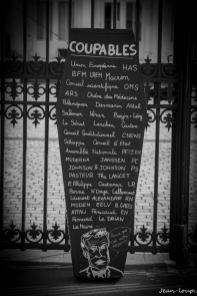 COUPABLES
Union Européenne HAS
BFM LREM Macron
Conseil scientifique OMS
ARS Ordre des Médecins
Darmanin Attal
Salomon Véran
Le Serut Lancker Castex
Conseil Constitutionnel CNEWS
Schiappa Conseil d'Etat
Assemblée Nationale PFIZER
MODERNA JANSSEN PC
JOHNSON & JOHNSON PS
PASTEUR The LANCET
E. Philippe Castaner LR
Borne N'Doye Lallement
Laurent ALEXANDRE RN
EELV
ATTALI
Le DRIAN
Jean-Loup.